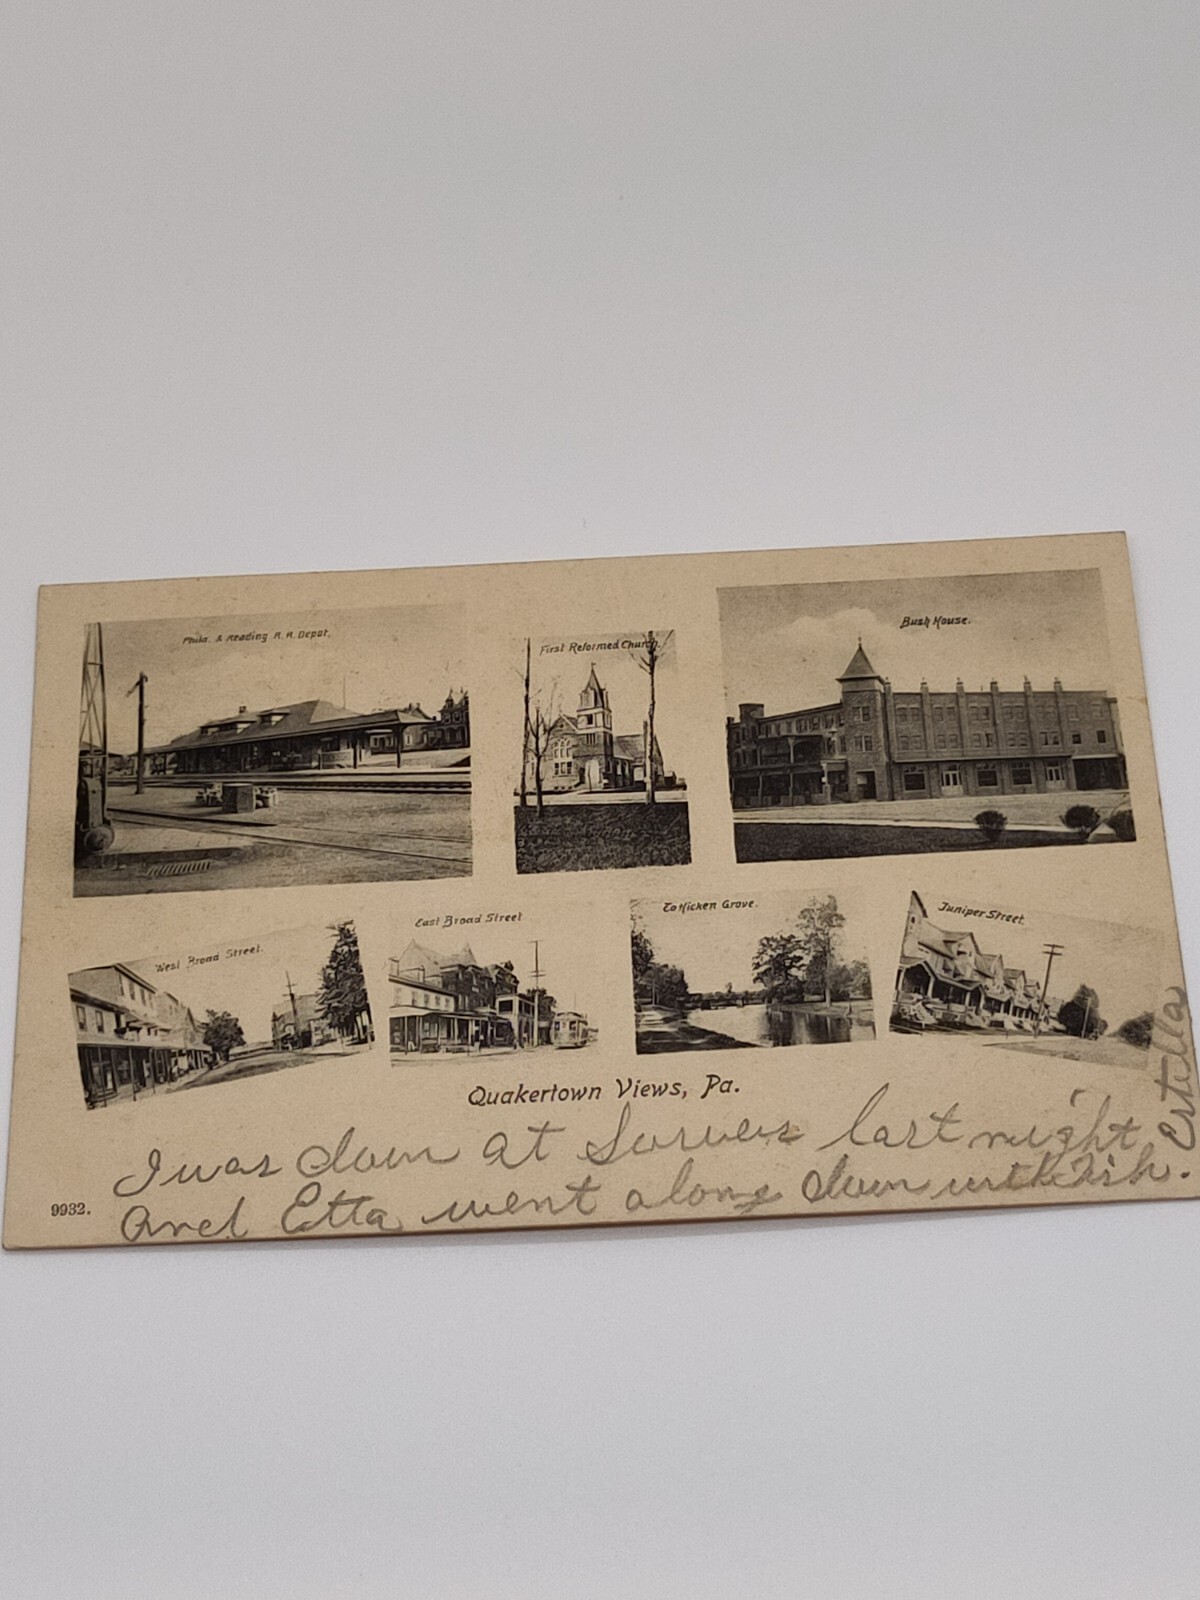 Phila. & Reading R. R. Depot.
First Reformed Church.
Bush House.
West Broad Street.
East Broad Street
Tohicken Grove.
Juniper Street.
Quakertown Views, Pa.
I was down at last night
And Etta went along down with
Estella
9932.